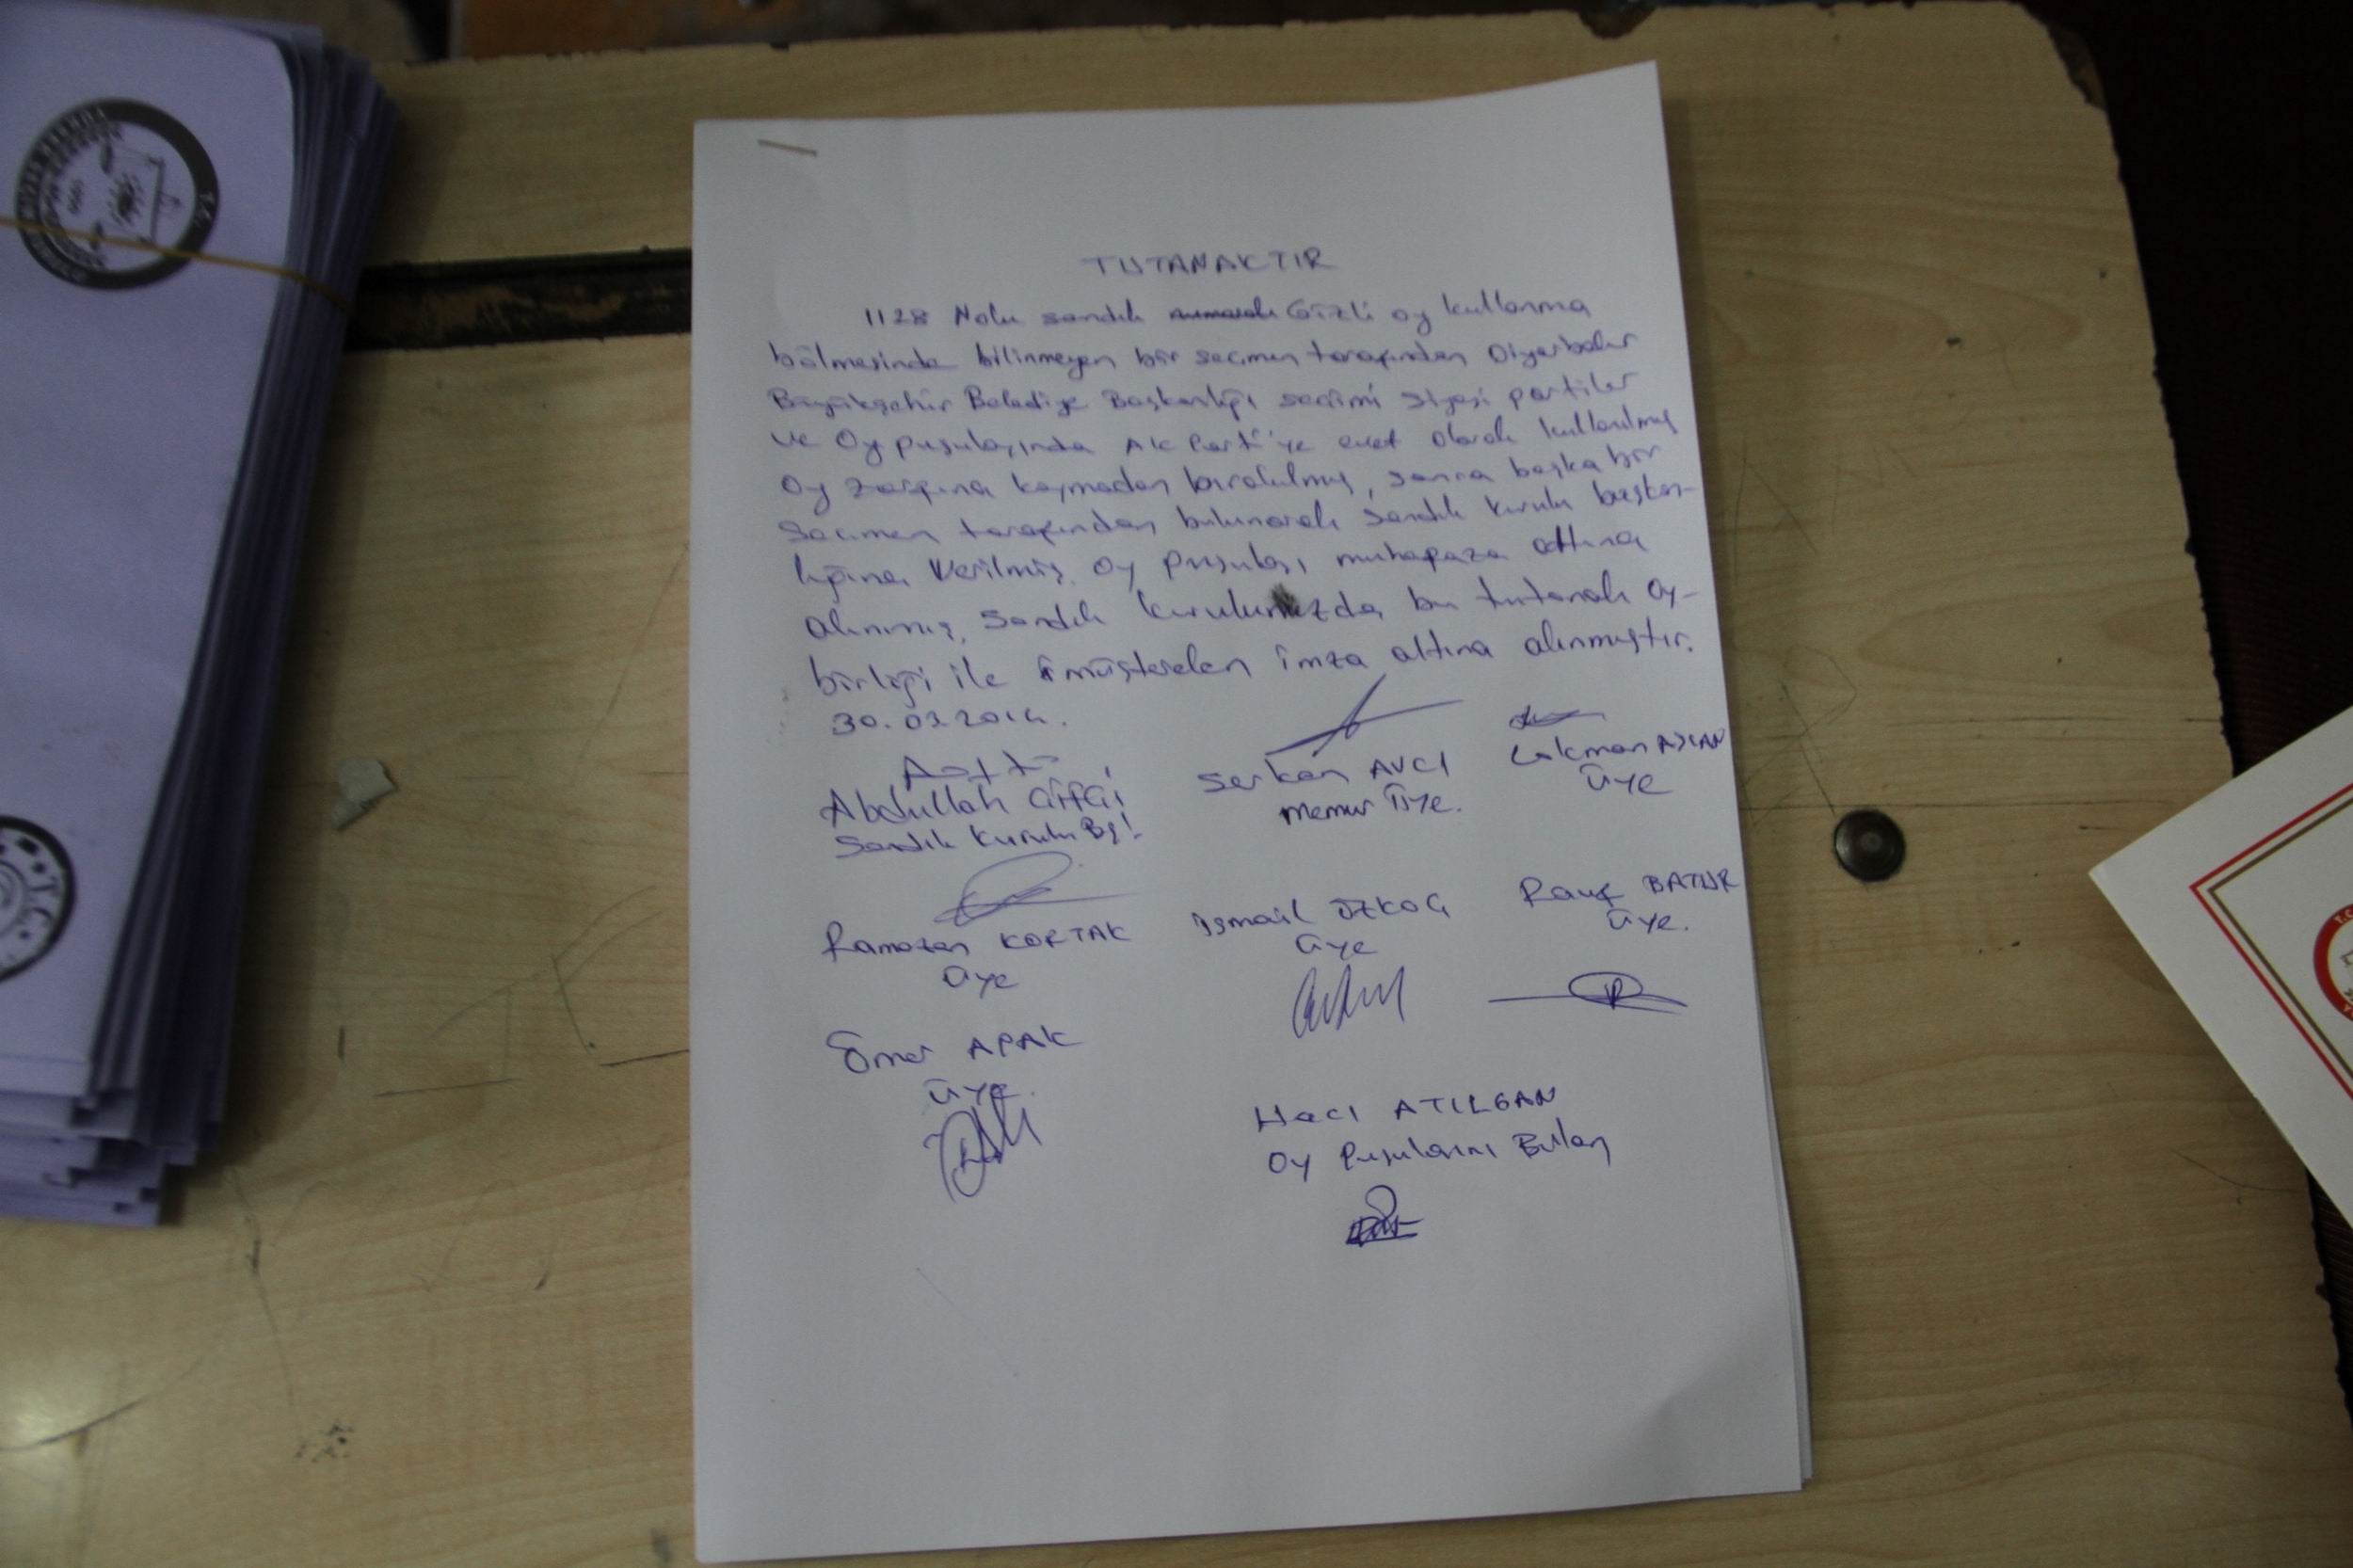 TUTANAKTIR
1128 Nolu sandık Gizli oy kullanma
bölmesinde bilinmeyen bir seçmen tarafından Diyarbakır
Büyükşehir Belediye Başkanlığı seçimi siyasi partiler
ve Oy pusulasında AK Parti'ye evet olarak kullanılmış
Oy zarfına koymadan bırakılmış, sonra başka bir
seçmen tarafından bulunarak sandık kurulu başkan-
lığına verilmiş. Oy pusulası muhafaza altına
alınmış, sandık kurulumuzda bu tutanak oy-
birliği ile müştereken imza altına alınmıştır.
30.03.2014.
Abdullah Çiftçi
Sandık Kurulu Bş!
Serkan AVCI
Memur Üye.
Lokman ASLAN
Üye
Ramazan KORTAK
Üye
İsmail ÖZKOÇ
Üye
Rauf BATUR
Üye.
Ömer APAK
Üye.
Hacı ATILGAN
Oy Pusulasını Bulan
T.C.